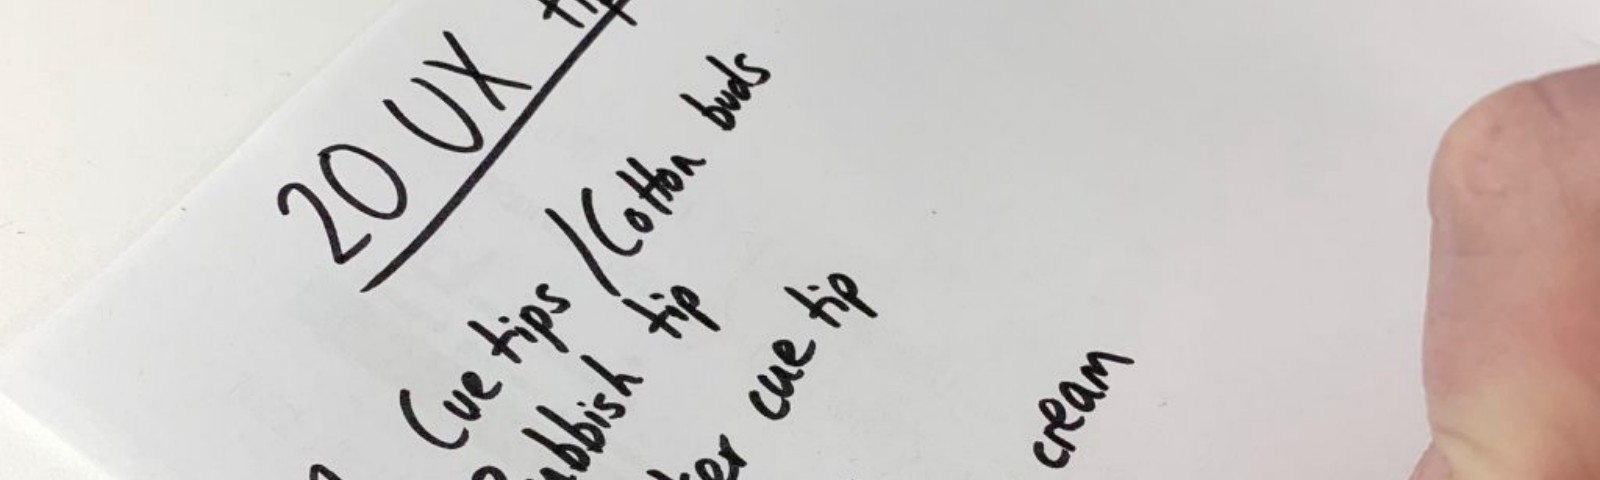 20 UX tip
Cue tips / Cotton buds
Rubbish tip
cue tip
cream